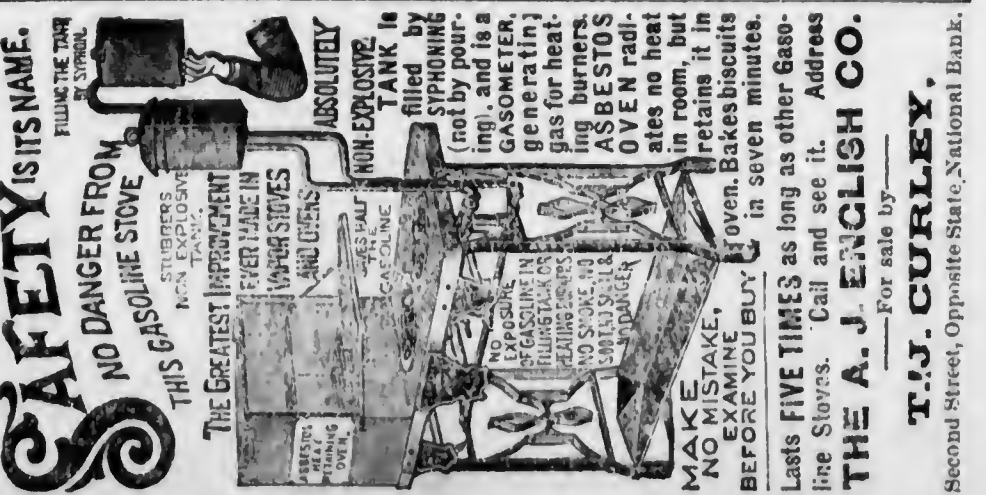 SAFETY IS ITS NAME.
NO DANGER FROM
THIS GASOLINE STOVE
FILLING THE TANK
BY SYPHON.
STUBERS
NON EXPLOSIVE
TANK.
THE GREATEST IMPROVEMENT
EVER MADE IN
VAPOR STOVES
AND OVENS
SAVES HALF
THE
GASOLINE
ASBESTOS
HEAT
RETAINING
OVEN.
NO
EXPOSURE
OF GASOLINE IN
FILLING TANK OR
HEATING BURNERS
NO SMOKE, NO
SOOT, NO SMELL &
NO DANGER
ABSOLUTELY
NON-EXPLOSIVE.
TANK is
filled by
SYPHONING
(not by pour-
ing), and is a
GASOMETER,
generating
gas for heat-
ing burners.
ASBESTOS
OVEN radi-
ates no heat
in room, but
retains it in
oven. Bakes biscuits
in seven minutes.
MAKE
NO MISTAKE,
EXAMINE
BEFORE YOU BUY
Lasts FIVE TIMES as long as other Gaso-
line Stoves. Call and see it. Address
THE A. J. ENGLISH CO.
For sale by
T. J. CURLEY,
Second Street, Opposite State National Bank.